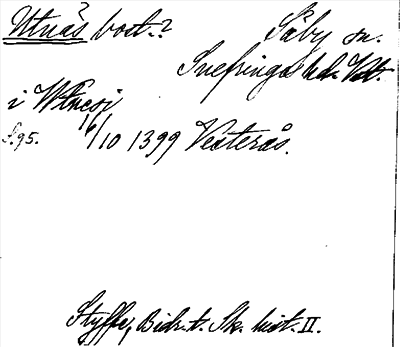 Utnäs? bort.? Säby sn.
Snefringe hd. Vstm.
i Wtnesj
S. 95. 16/10 1399 Vesterås.
Styffe, Bidr. t. Sk. hist. II.